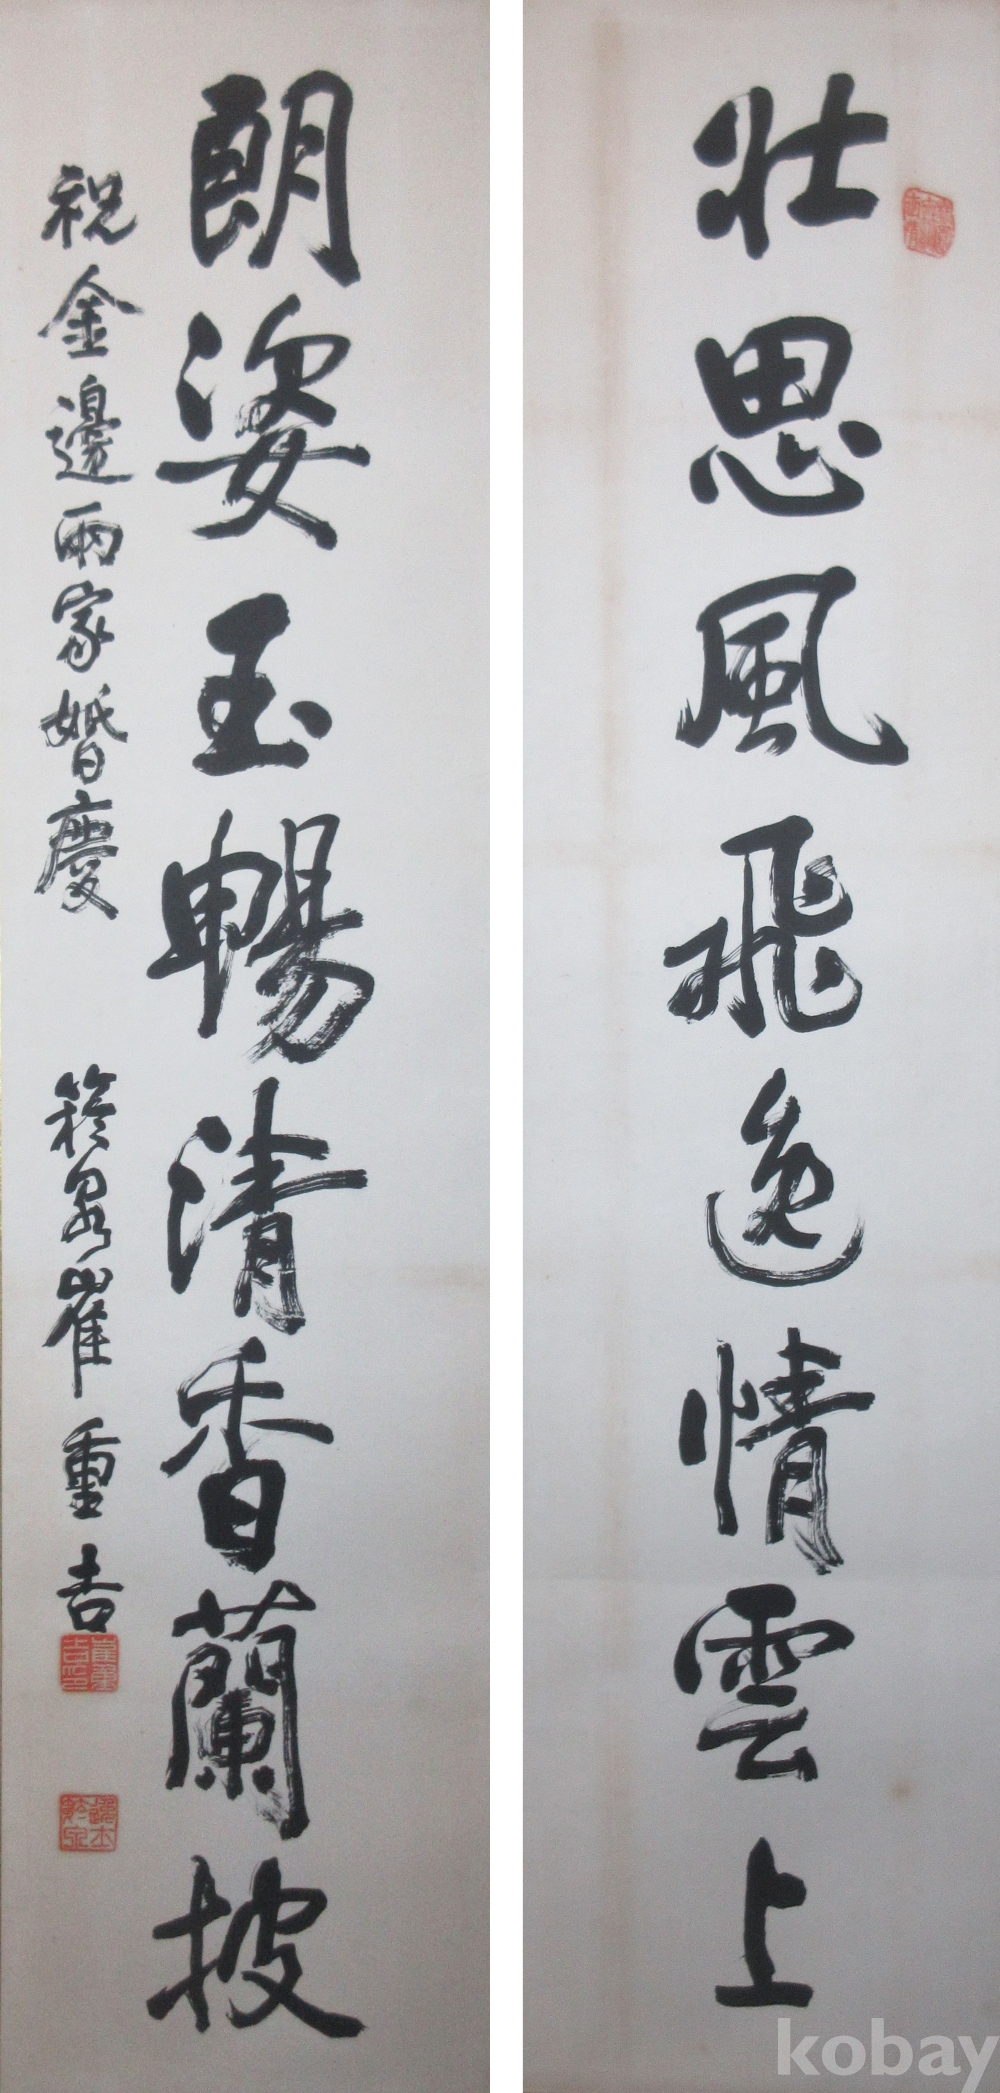 壯思風飛逸情雲上
朗姿玉暢清香蘭披
祝金邊兩家婚慶
崔重吉
kobay